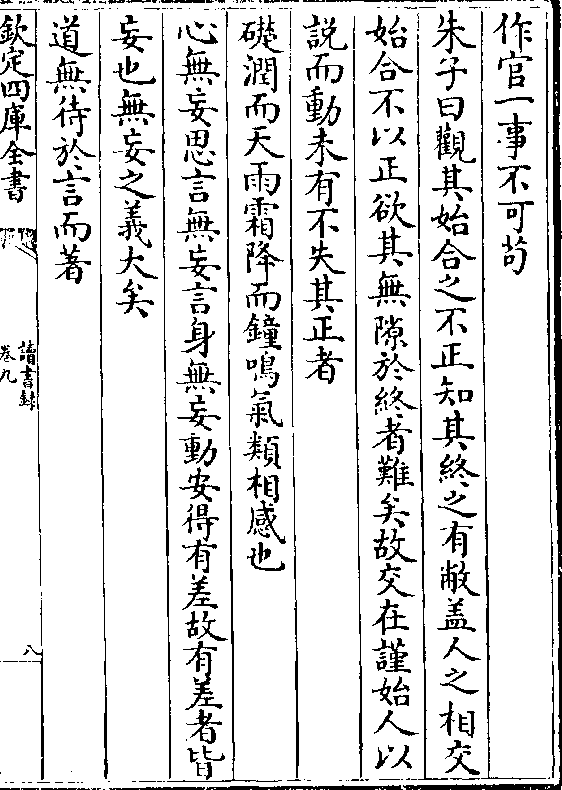 作官一事不可苟
朱子曰觀其始合之不正知其終之有敝盖人之相交
始合不以正欲其無隙於終者難矣故交在謹始人以
説而動未有不失其正者
礎潤而天雨霜降而鐘鳴氣類相感也
心無妄思言無妄言身無妄動安得有差故有差者皆
妄也無妄之義大矣
道無待於言而著
欽定四庫全書
讀書録
卷九
八